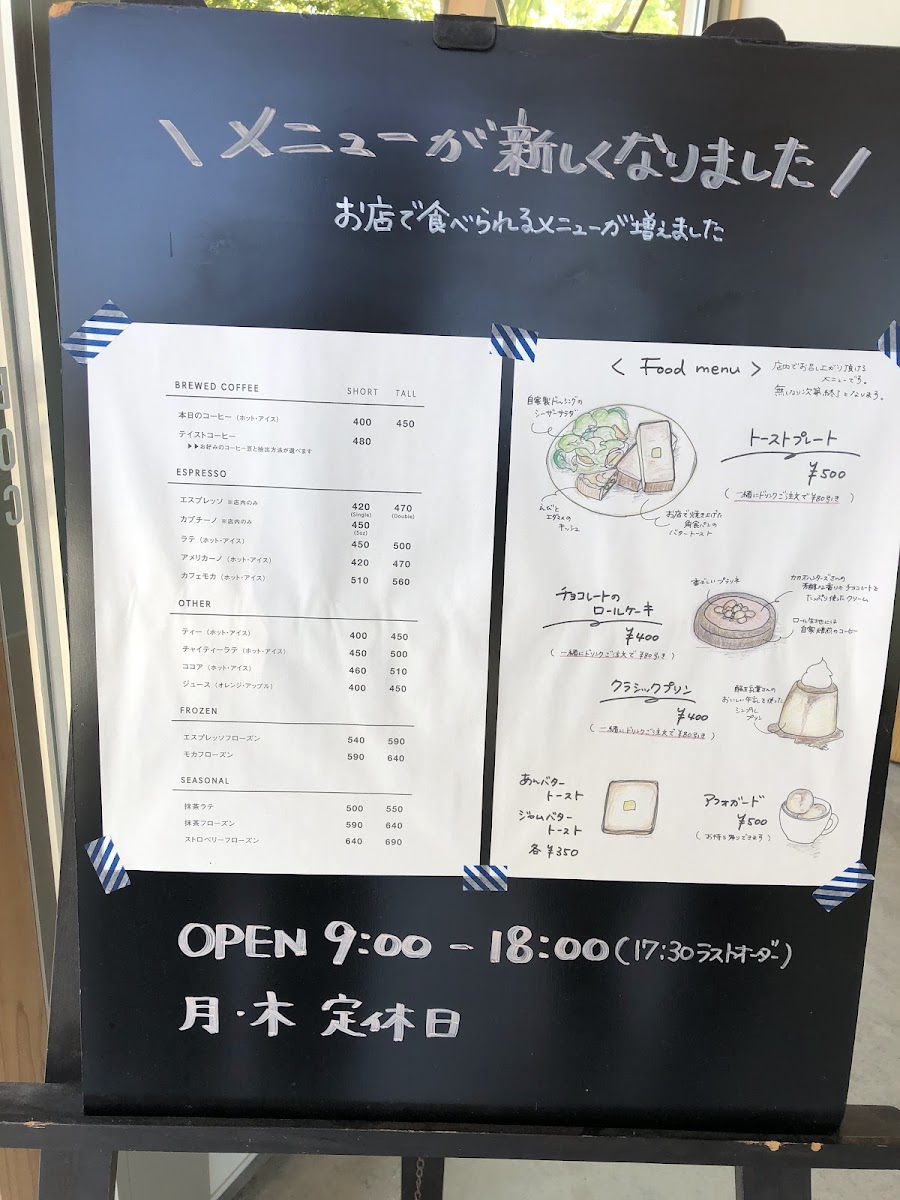 \ メニューが新しくなりました /
お店で食べられるメニューが増えました
BREWED COFFEE SHORT TALL
本日のコーヒー（ホット・アイス） 400 450
テイストコーヒー 480
▶▶お好みのコーヒー豆と抽出方法が選べます
ESPRESSO
エスプレッソ ※店内のみ 420 470
(Single) (Double)
カプチーノ ※店内のみ 450
(5oz)
ラテ（ホット・アイス） 450 500
アメリカーノ（ホット・アイス） 420 470
カフェモカ（ホット・アイス） 510 560
OTHER
ティー（ホット・アイス） 400 450
チャイティーラテ（ホット・アイス） 450 500
ココア（ホット・アイス） 460 510
ジュース（オレンジ・アップル） 400 450
FROZEN
エスプレッソフローズン 540 590
モカフローズン 590 640
SEASONAL
抹茶ラテ 500 550
抹茶フローズン 590 640
ストロベリーフローズン 640 690
< Food menu >
店内でお召し上がり頂ける
メニューです。
無くなり次第、終了となります。
自家製ドレッシングの
シーザーサラダ
トーストプレート
¥500
(一緒にドリンクご注文で¥80引き)
えびと
エダマメの
キッシュ
お店で焼き上げた
角食パンの
バタートースト
チョコレートの
ロールケーキ
¥400
(一緒にドリンクご注文で¥80引き)
香ばしいプラリネ
カカオハンターズさんの
芳醇な香りのチョコレートを
たっぷり使ったクリーム
ロール生地には
自家焙煎のコーヒー
クラシックプリン
¥400
(一緒にドリンクご注文で¥80引き)
おいしい牛乳を使った
シンプル
プリン
あんバター
トースト
ジャムバター
トースト
各¥350
アフォガード
¥500
(お持ち帰りできます)
OPEN 9:00 - 18:00 (17:30ラストオーダー)
月・木 定休日